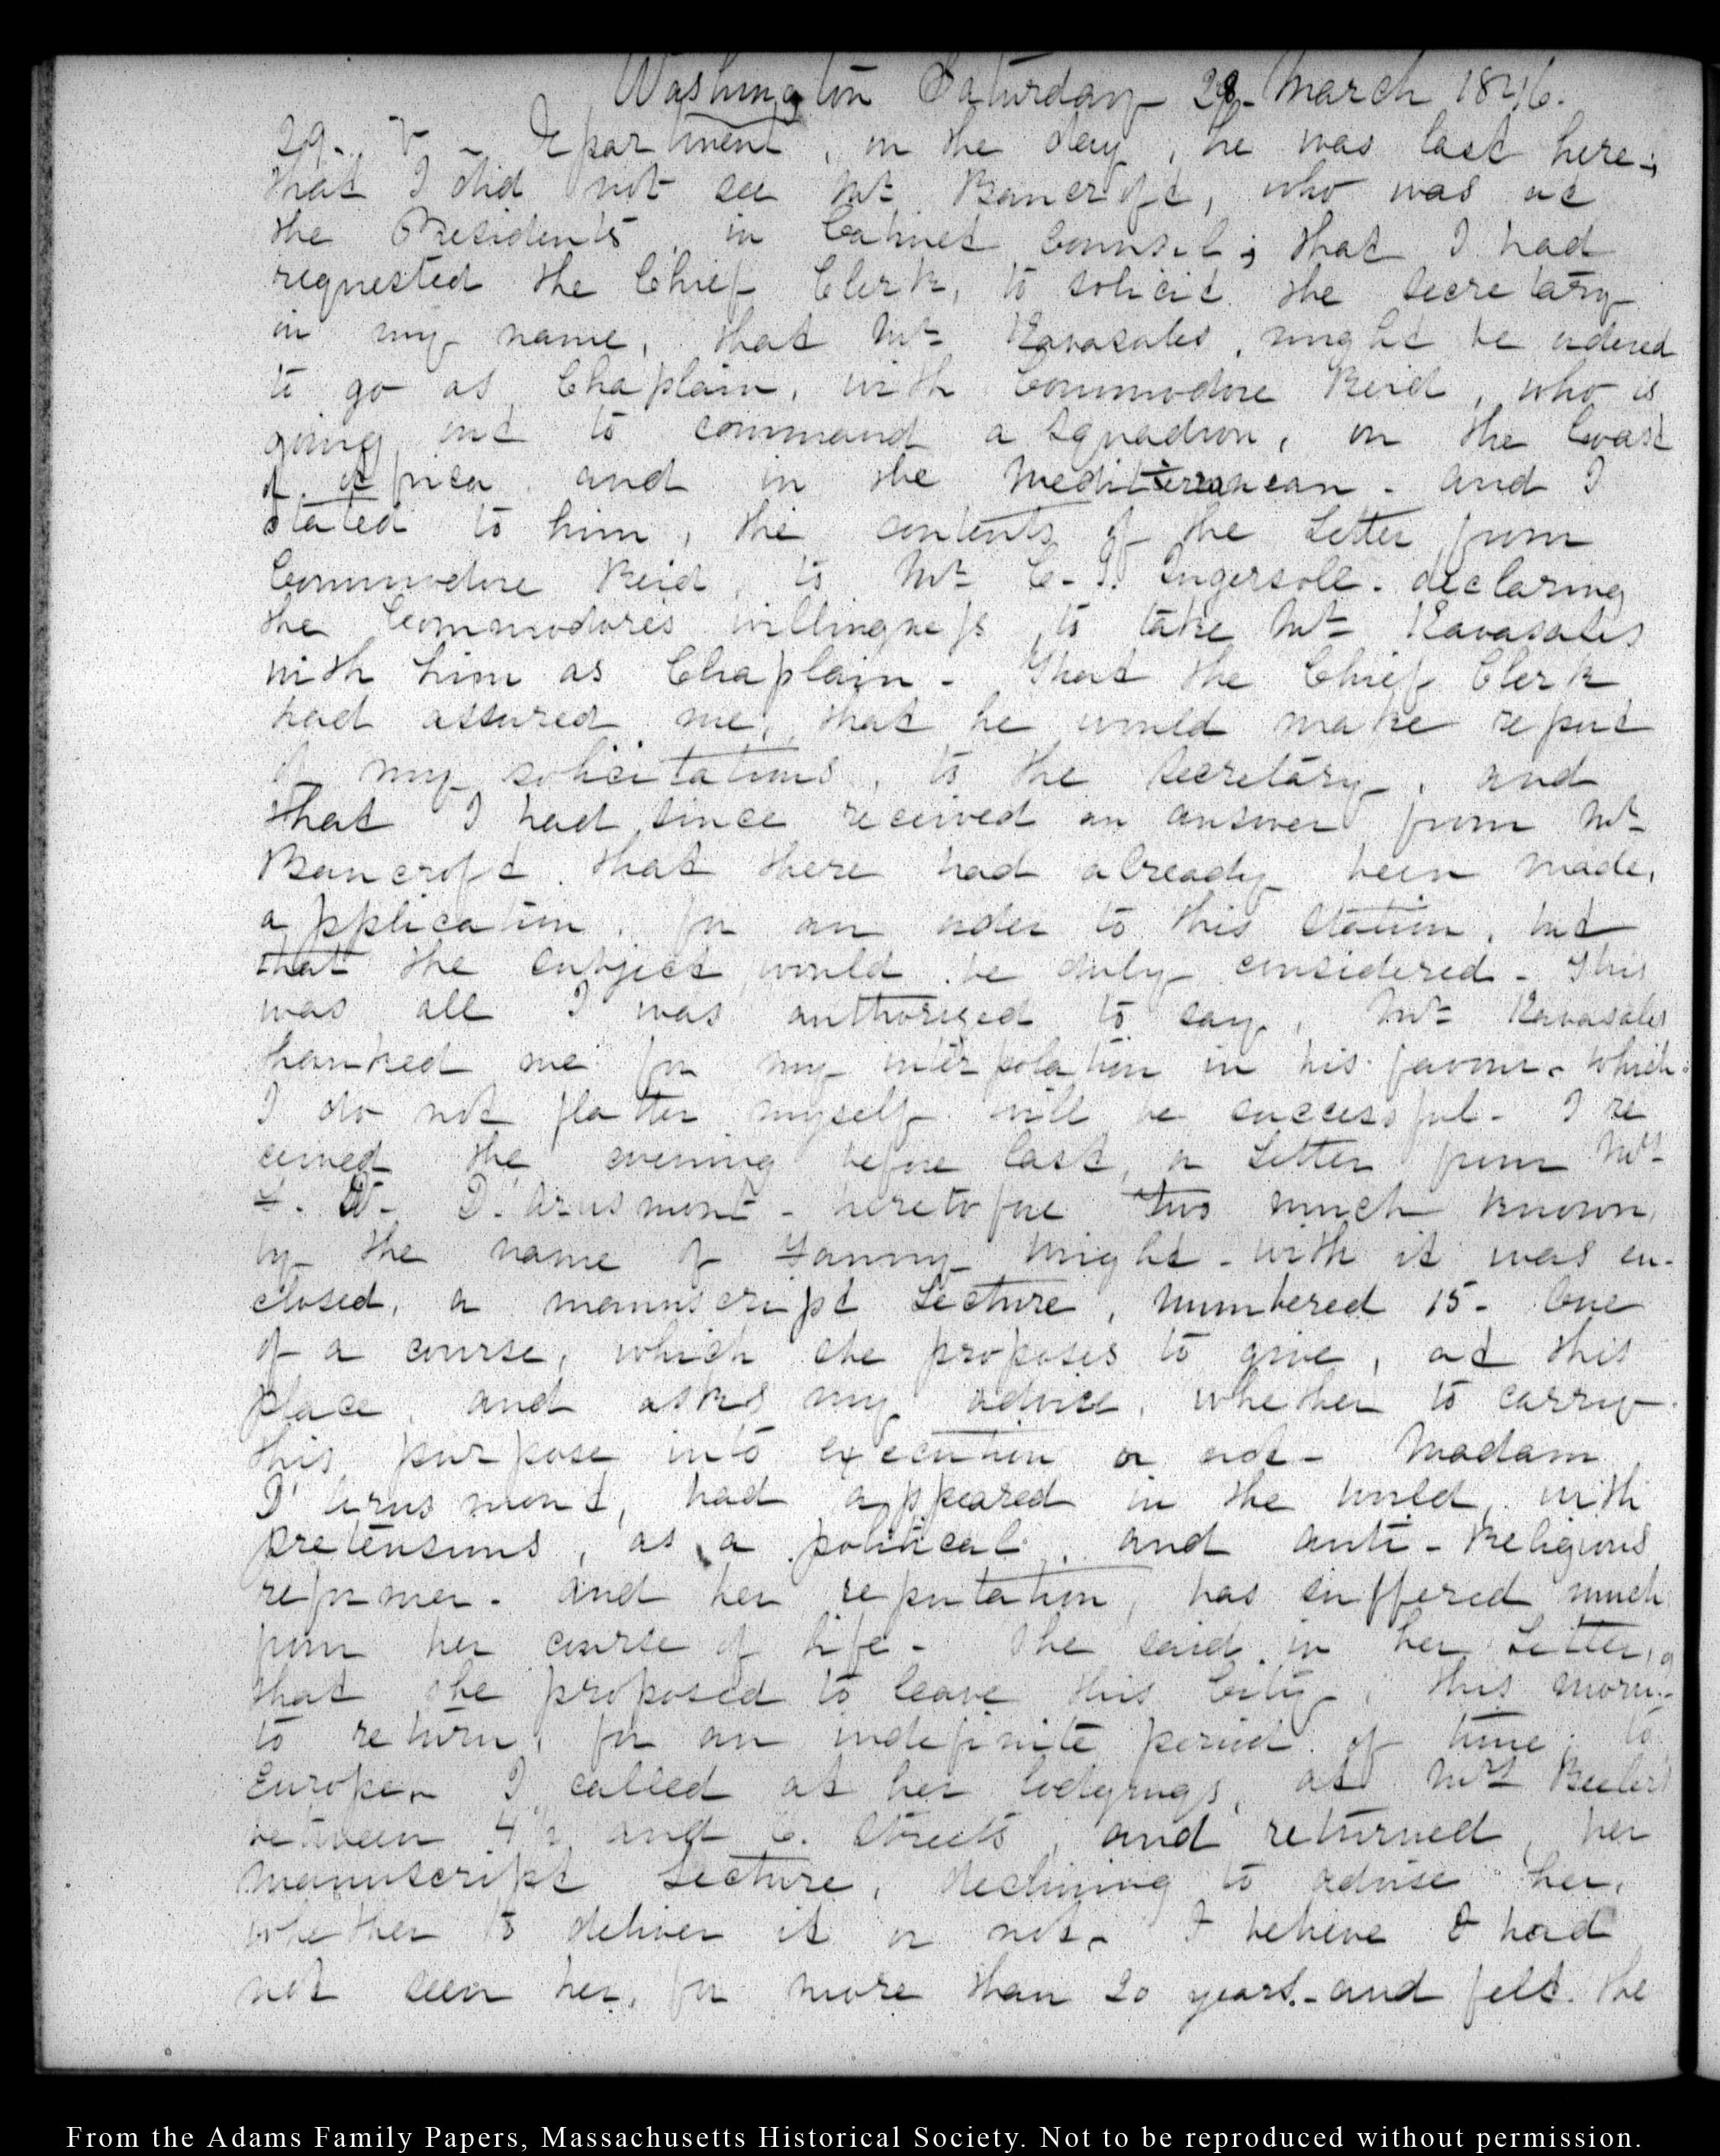 Washington Saturday 28. March 1846.
29. V. Department, on the day, he was last here;
that I did not see Mr. Bancroft, who was at
the Presidents, in Cabinet Counsil; that I had
requested the Chief Clerk, to solicit the Secretary
in my name, that Mr. Ravasales, might be ordered
to go as Chaplain, with Commodore Reid, who is
going out to command a Squadron, on the Coast
of Africa and in the Mediterranean - and I
stated to him, the contents of the Letter from
Commodore Reid, to Mr. C. J. Ingersoll - declaring
the Commodore's willingness to take Mr. Ravasales
with him as Chaplain - That the Chief Clerk
had assured me, that he would make report
of my solicitations, to the Secretary, and
that I had since received an answer from Mr.
Bancroft that there had already been made,
application, for an order to this Station, but
that the subject would be duly considered - This
was all I was authorized to say, Mr. Ravasales
thanked me for my interpolation in his favour - which
I do not flatter myself will be successful - I re
ceived the evening before last, a Letter from Mrs.
F. W. D'Arusmont - heretofore too much known
by the name of Fanny Wright - with it was en-
closed, a manuscript Lecture, numbered 15 - One
of a course, which she proposes to give, at this
place, and asks my advice, whether to carry
this purpose into execution or not - Madam
D'Arusmont, had appeared in the world, with
pretensions, as a political, and anti-Religious
reformer - and her reputation, has suffered much
from her course of life - She said in her Letter,
that she proposed to leave this City, this morn.
to return, for an indefinite period of time, to
Europe - I called at her lodgings, at Mrs. Beeler's
between 4½ and 6. Streets, and returned, her
manuscript Lecture, declining to advise her,
whether to deliver it or not - I believe I had
not seen her, for more than 20 years - and felt the
From the Adams Family Papers, Massachusetts Historical Society. Not to be reproduced without permission.